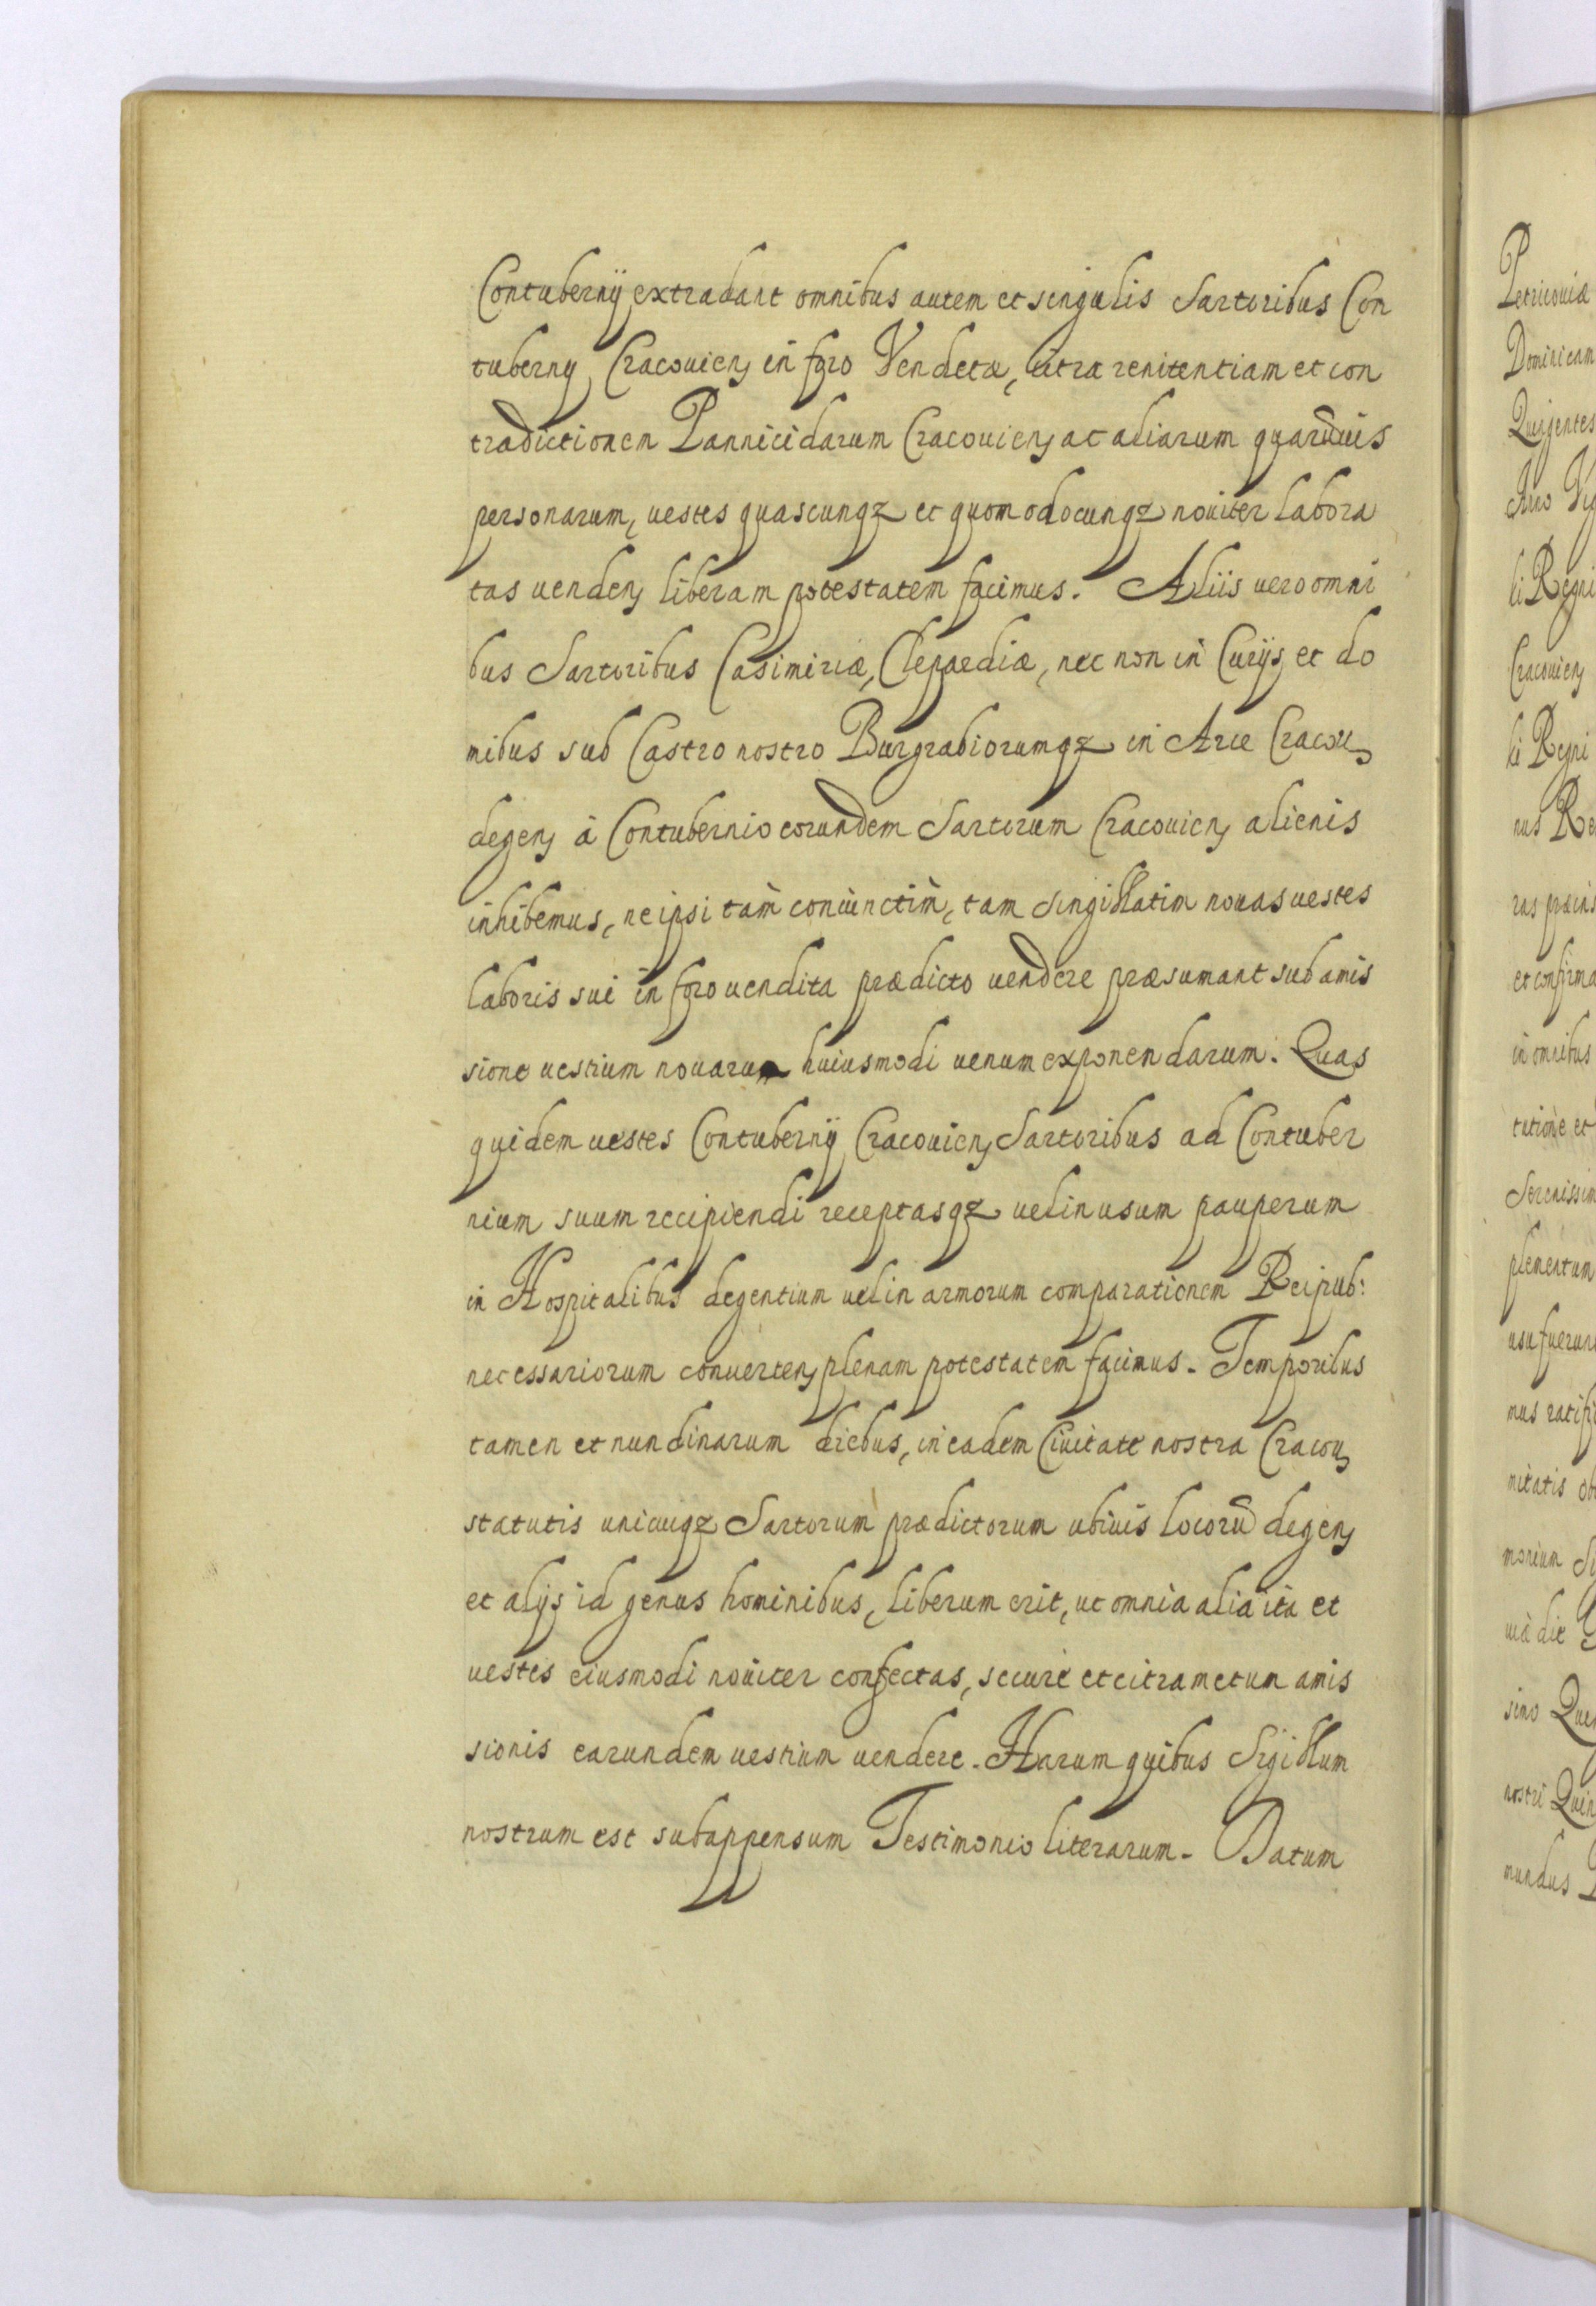 Contubernÿ extradant omnibus autem et singulis Sartoribus Con
tuberny Cracouien̄ in foro Vendetæ, citra renitentiam et con
tradictionem Pannicidarum Cracouien̄ ac aliarum quarũuis
personarum, uestes quascunqz et quomodocunqz nouiter labora
tas uenden̄ liberam potestatem facimus. Aliis uero omni
bus Sartoribus Casimiriæ, Clepardiæ, nec non in Curijs et do
mibus sub Castro nostro Burgrabiorumqz in Arce Cracou̅
degen̄ à Contubernio eorundem Sartorum Cracouien̄ alienis
inhibemus, ne ipsi tam̀ coniunctim̀, tam singillatim nouas uestes
laboris sui in foro uendita prædicto uendere præsumant sub amis
sione uestium nouarum huiusmodi uenum exponendarum. Quas
quidem uestes Contubernÿ Cracouien̄ Sartoribus ad Contuber
nium suum recipiendi receptasqz uel in usum pauperum
in Hospitalibus degentium uel in armorum comparationem Reipub:
necessariorum conuerten̄ plenam potestatem facimus. Temporibus
tamen et nundinarum diebus, in eadem Ciuitate nostra Cracou̅
statutis unicuiqz Sartorum prædictorum ubiuis locorũ degen̄
et alijs id genus hominibus, liberum erit, ut omnia alia ita et
uestes eiusmodi nouiter confectas, secure et citra metum amis
sionis earundem uestium uendere. Harum quibus Sigillum
nostrum est subappensum Testimonio literarum. Datum
Petricouiæ
Dominicam
Quigentes
li Regni
Cracouien̄
li Regni
ras præins
et confirma
in omnibus
tutione et
Serenissim
plementum
usu fuerun
mus ratifi
nitatis ob
nostri Quin
mundus